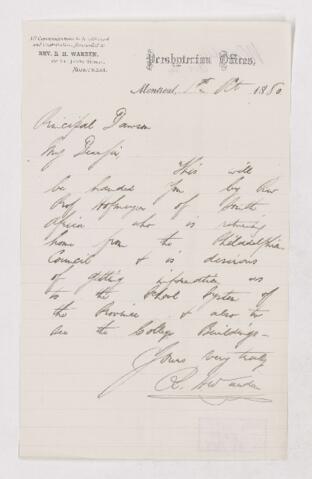 All Communications to be addressed
and Contributions forwarded to
REV. R. H. WARDEN,
St. James Street,
MONTREAL.
Presbyterian Offices,
Montreal, 1st Oct 1880
Principal Dawson
My Dear Sir,
This will
be handed you by Rev
Prof Hofmeyer of South
Africa who is returning
home from the Philadelphia
Council & is desirous
of getting information as
to the School System of
the Province & also to
see the College Buildings—
Yours very truly
R. H. Warden